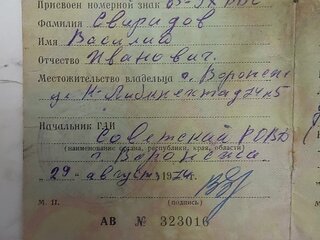 Присвоен номерной знак
Фамилия Свиридов
Имя Василий
Отчество Иванович.
Местожительство владельца г. Воронеж
ул.
Начальник ГАИ
Советский РОВД
(наименование органа, республики, края, области)
г. Воронежа
29 август 1974 г.
(подпись)
М. П.
АВ № 323016